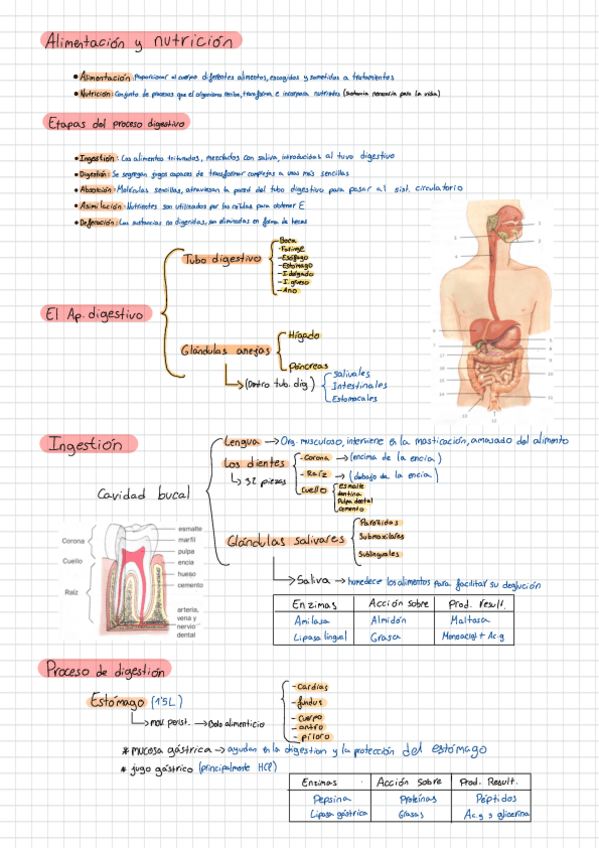 Alimentación y nutrición
• Alimentación: Proporcionar al cuerpo diferentes alimentos, escogidos y sometidos a tratamientos
• Nutrición: Conjunto de procesos que el organismo recibe, transforma e incorpora nutrientes (sustancia necesaria para la vida)
Etapas del proceso digestivo
• Ingestión: Los alimentos triturados, mezclados con saliva, introducidos al tuvo digestivo
• Digestión: Se segregan jugos capaces de transformar complejas a unas más sencillas
• Absorción: Moléculas sencillas, atraviesan la pared del tubo digestivo para pasar al sist. circulatorio
• Asimilación: Nutrientes son utilizados por las células para obtener E
• Defecación: Las sustancias no digeridas, son eliminadas en forma de heces
El Ap. digestivo
Tubo digestivo
- Boca
- Faringe
- Esófago
- Estómago
- I. delgado
- I. grueso
- Ano
Glándulas anejas
- Hígado
- Páncreas
(Dentro tub. dig)
Salivales
Intestinales
Estomacales
Ingestión
Cavidad bucal
Lengua → Org. musculoso, interviene en la masticación, amasado del alimento
Los dientes
↳ 32 piezas
- Corona → (encima de la encía)
- Raíz → (debajo de la encía)
Cuello
esmalte
dentina
Pulpa dental
Cemento
Glándulas salivares
Parótidas
Submaxilares
Sublinguales
↳ Saliva → humedece los alimentos para facilitar su deglución
Corona
Cuello
Raíz
esmalte
marfil
pulpa
encía
hueso
cemento
arteria,
vena y
nervio
dental
Enzimas Acción sobre Prod. result.
Amilasa Almidón Maltosa
Lipasa lingual Grasa Monoacigl + Ac.g
Proceso de digestión
Estómago (1'5L)
↳ mov. perist. → Bolo alimenticio
- Cardias
- fundus
- cuerpo
- antro
- píloro
* mucosa gástrica → ayudan en la digestion y la protección del estómago
* jugo gástrico (principalmente HCl)
Enzimas Acción sobre Prod. Result.
Pepsina Proteínas Péptidos
Lipasa gástrica Grasas Ac.g y glicerina